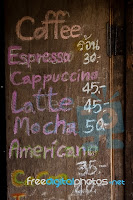 Coffee
ร้อน
Espresso 30.-
Cappuccino
45.-
Latte 45.-
Mocha 50.-
Americano
35.-
FreeDigitalPhotos.net